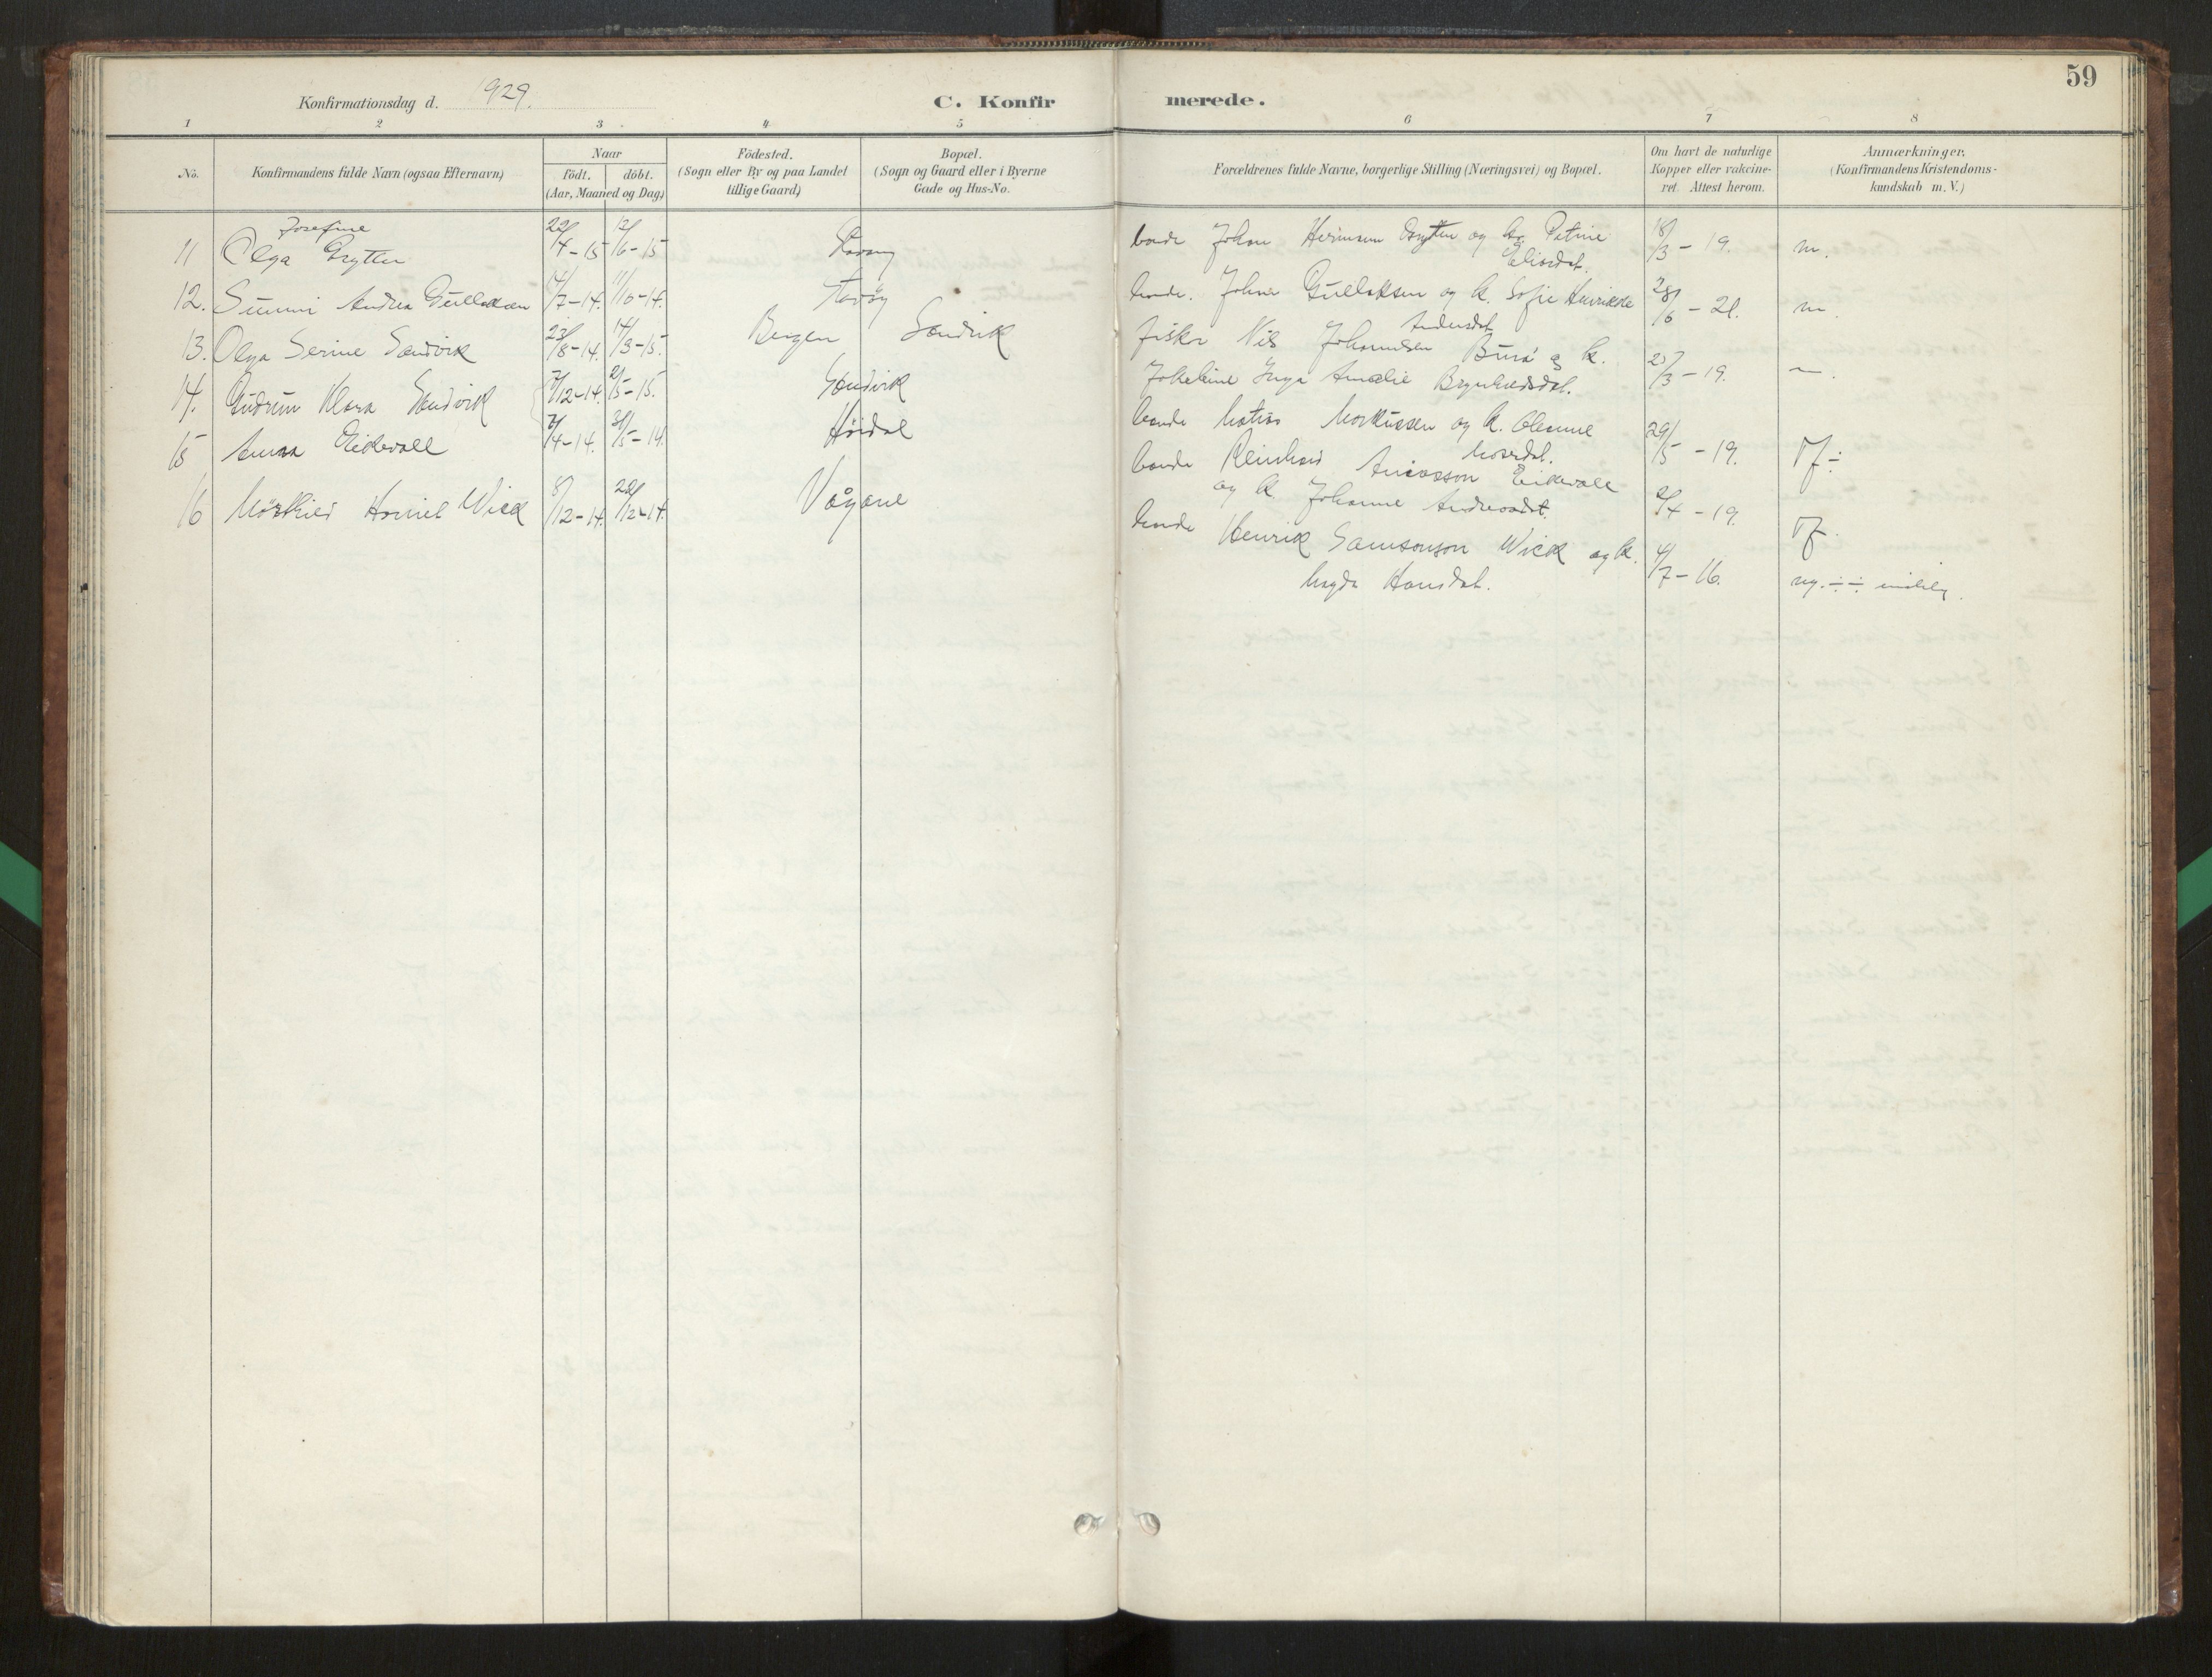 59
Konfirmationsdag d. 1929.
C. Konfirmerede.
1 2 3 4 5 6 7 8
No.
Konfirmandens fulde Navn (ogsaa Efternavn)
Naar
födt. döbt.
(Aar, Maaned og Dag)
Födested.
(Sogn eller By og paa Landet
tillige Gaard)
Bopæl.
(Sogn og Gaard eller i Byerne
Gade og Hus-No.
Forældrenes fulde Navne, borgerlige Stilling (Næringsvei) og Bopæl.
Om havt de naturlige
Kopper eller vakcine-
ret. Attest herom.
Anmærkninger.
(Konfirmandens Kristendoms-
kundskab m. V.)
Josefine
11 Olga Grytten 22/4-15 12/6-15 Stavang bonde Johan Hermansen Grytten og k. Petrine 18/3-19. m.
Eliasdat.
12. Sunniv Andrea Gullaksen 14/7-14. 11/10-14. bonde. Johan Gullaksen og k. Sofie Henrikke 28/6-21. m.
Andersdat.
13. Olga Serine Sandvik 23/8-14. 14/3-15. Bergen Sandvik fisker Nils Johannessen Burø og k. 25/3-19.
Inga Amalie
14. Gudrun Klara Sandvik 7/12-14. 2/5-15. Sandvik bonde Matias Markussen og k. Oleanne 29/5-19. Tf÷
15 Anna Eidevoll 7/4-14. 31/5-14. Høidal bonde Reinhard Eidevoll
og k. Johanne Andreasdat. 2/4-19. Tf.
16 Wick 8/12-14. 28/12-14. Vågane bonde Henrik Samsonson Wick og k. 4/7-16. ng. ÷÷
Magda Hansdat.